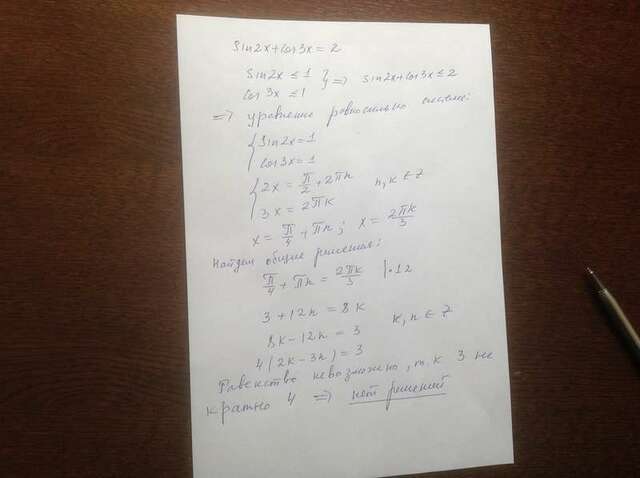 sin2x + cos3x = 2
sin2x ≤ 1 } => sin2x + cos3x ≤ 2
cos3x ≤ 1
=> уравнение равносильно системе:
{ sin2x = 1
cos3x = 1
{ 2x = π/2 + 2πn n, k ∈ Z
3x = 2πk
x = π/4 + πn ; x = 2πk/3
Найдем общие решения:
π/4 + πn = 2πk/3 | · 12
3 + 12n = 8k
8k - 12n = 3 k, n ∈ Z
4(2k - 3n) = 3
Равенство невозможно, т.к 3 не
кратно 4 => нет решений